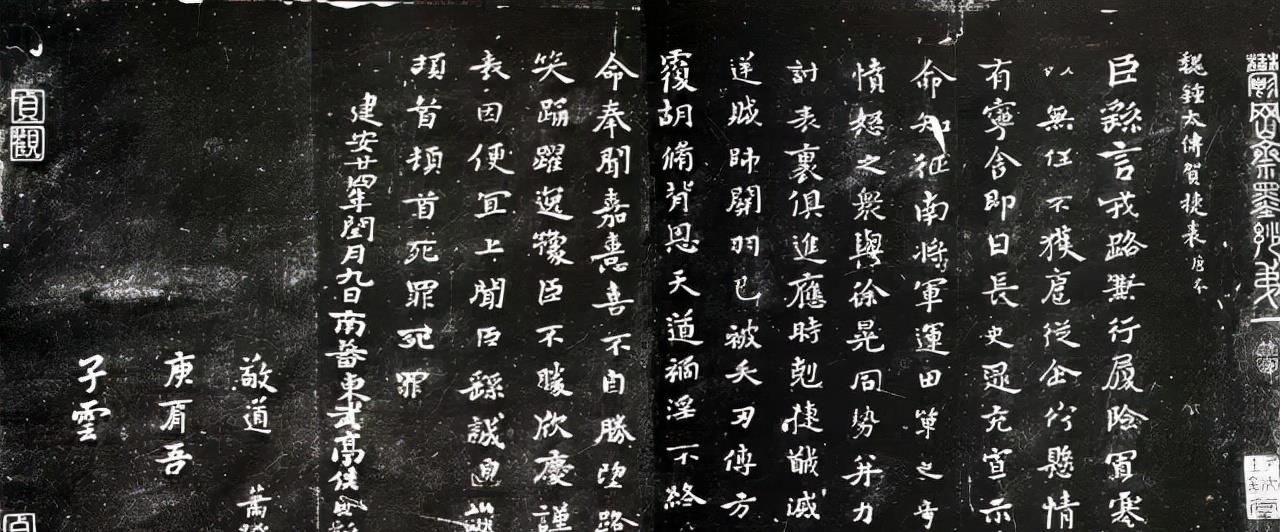 魏鍾太傅賀捷表 唐本
臣繇言戎路兼行履險冒寒
以無任不獲扈從企佇懸情
有寧舍即日長史逯充宣示
命知征南將軍運田單之奇
憤怒之衆與徐晃同勢并力
討表裏俱進應時剋捷馘滅
逆賊帥關羽已被矢刃傅方
覆胡脩背恩天道禍淫不終
命奉聞嘉憙喜不自勝望路
笑踊躍逸豫臣不勝欣慶謹
表因便宜上聞臣繇誠皇
頓首頓首死罪死罪
建安廿四年閏月九日南蕃東武亭侯臣繇
敬道
庾肩吾
子雲
貞觀